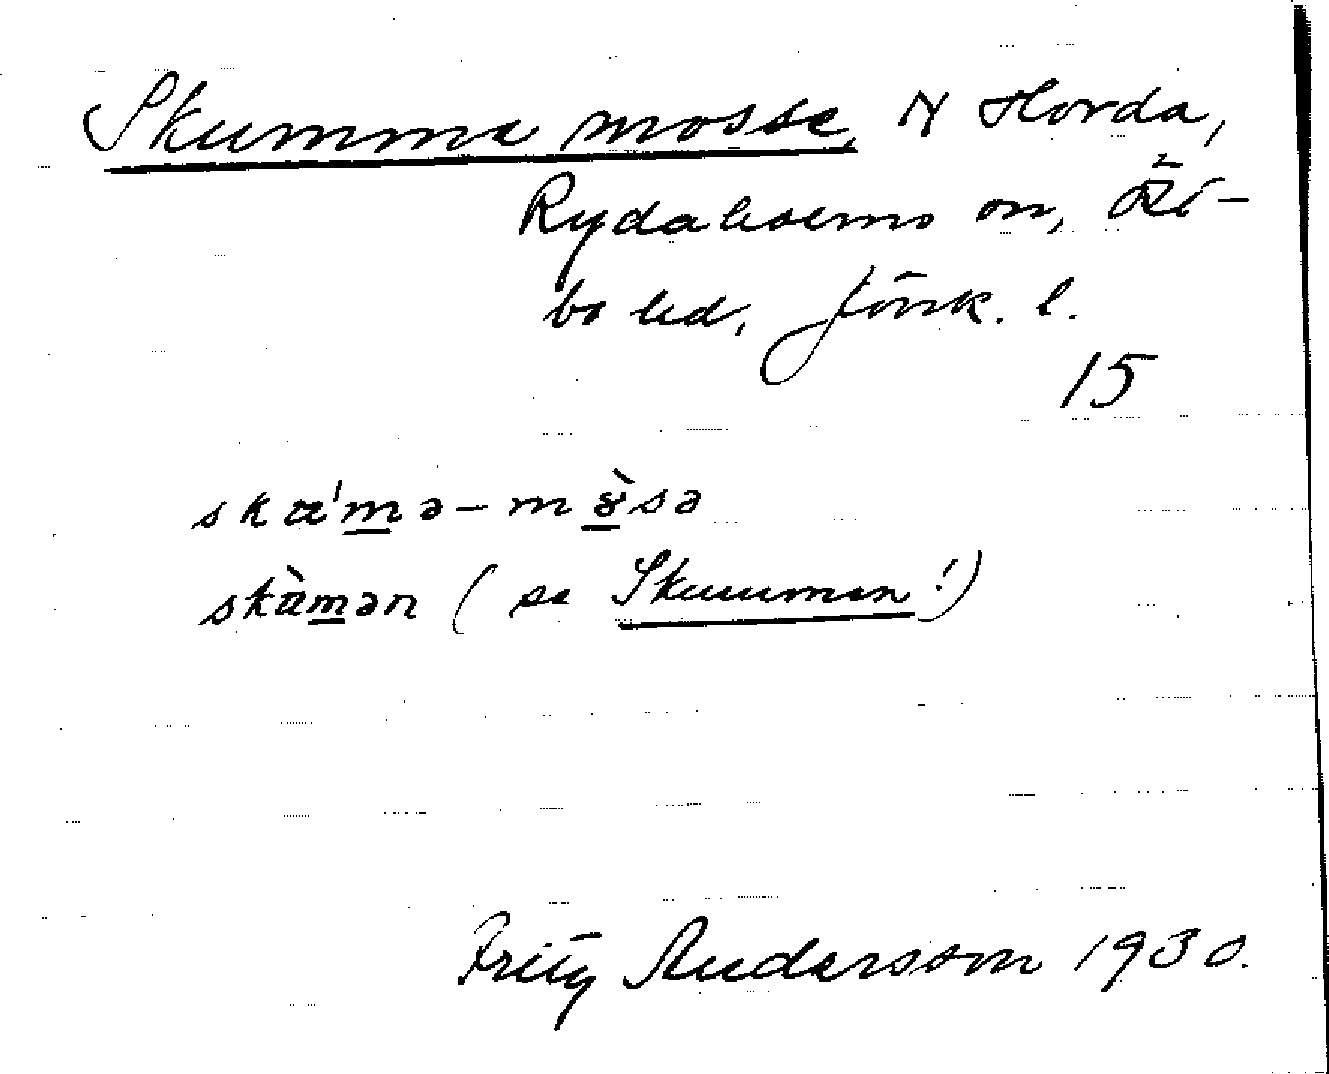 Skumme mosse, N Horda,
Rydaholms sn, Öst-
bo hd, Jönk. l.
15
skα'mə-mɤ̀sə
skὰmən (se Skumman!)
Fritz Andersson 1930.